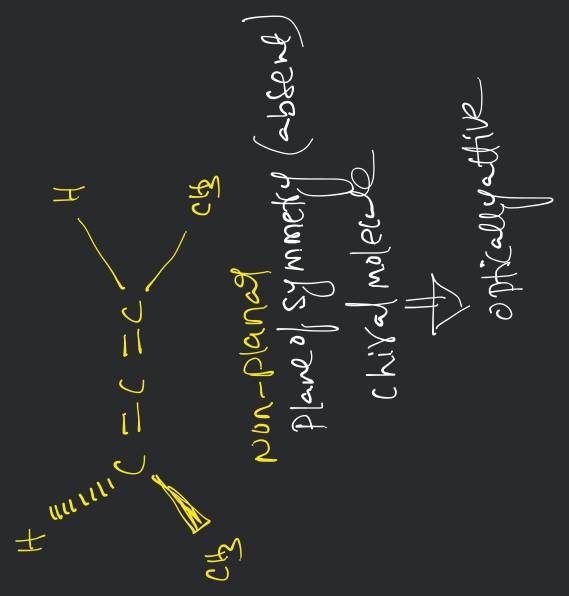 H H
C = C = C
CH3 CH3
Non-planar
Plane of symmetry (absent)
chiral molecule
⇓
optically attive